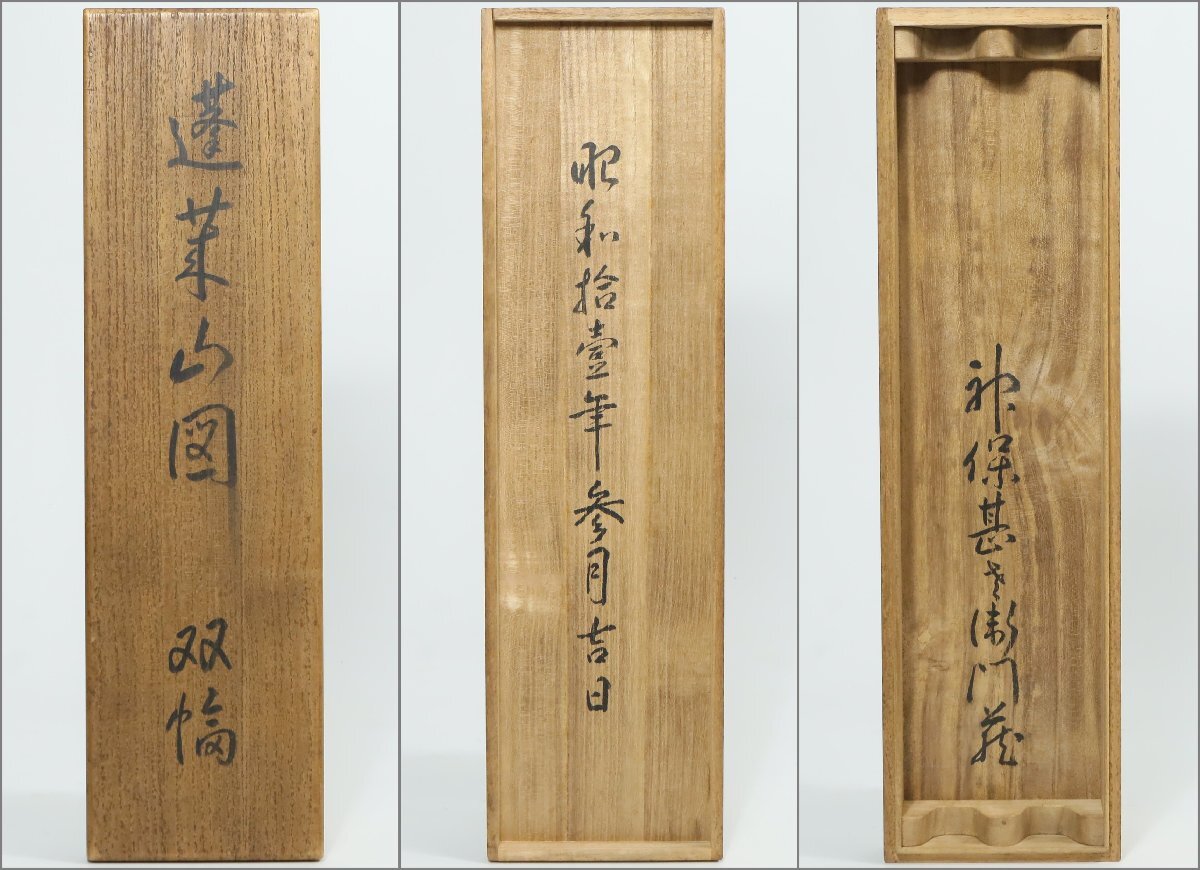 蓬莱山図 双幅
昭和拾壹年参月吉日
神保甚左衛門蔵